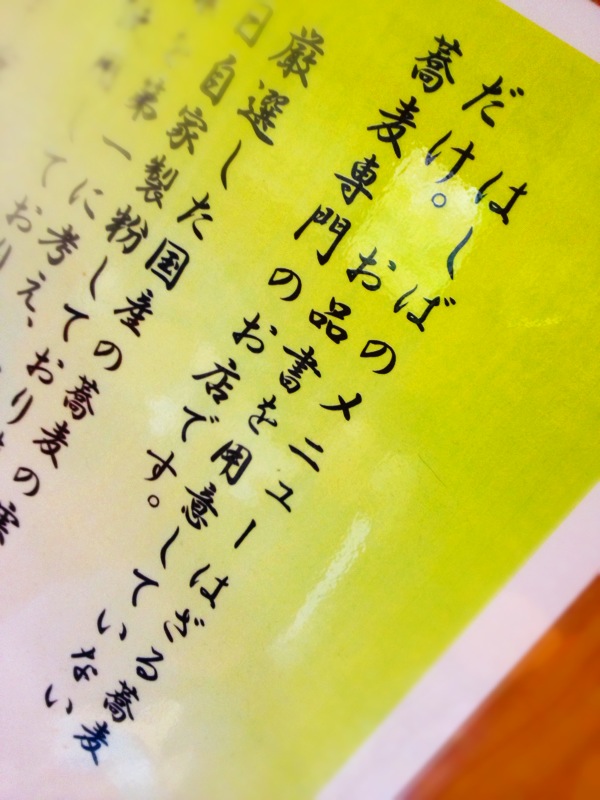 はしばのメニューはざる蕎麦
だけ。お品書を用意していない
蕎麦専門のお店です。
厳選した国産の蕎麦の実
日自家製粉しており
を第一に考え、
しており